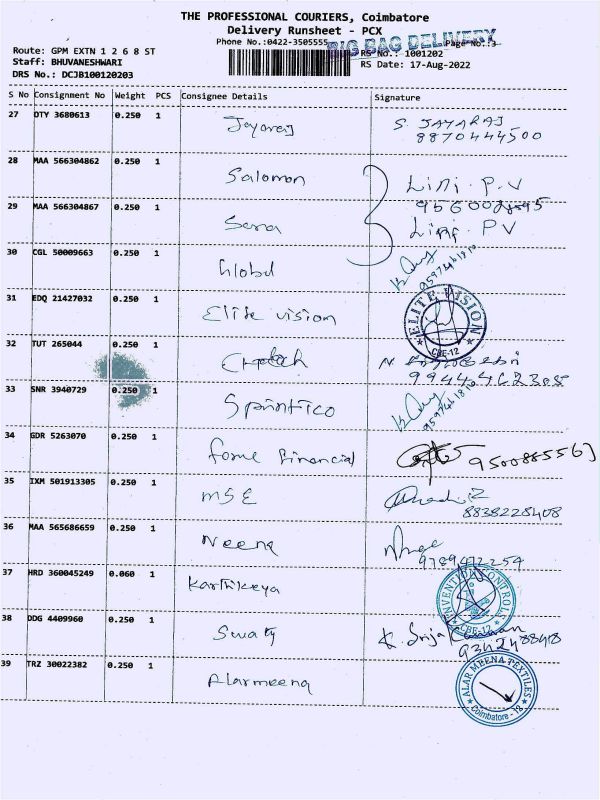 THE PROFESSIONAL COURIERS, Coimbatore
Delivery Runsheet - PCX
Phone No.:0422-3505555
BIG BAG DELIVERY
Page No.:3
Route: GPM EXTN 1 2 6 8 ST
RS No.: 1001202
Staff: BHUVANESHWARI
RS Date: 17-Aug-2022
DRS No.: DCJB100120203
S No Consignment No Weight PCS Consignee Details Signature
27 DTY 3680613 0.250 1 Jayaraj S. JAYARAJ
8870444500
28 MAA 566304862 0.250 1 Salomon Lini. P.V
29 MAA 566304867 0.250 1 Sara Lini P V
30 CGL 50009663 0.250 1 Global
31 EDQ 21427032 0.250 1 Elite vision ELITE VISION CBE-12
32 TUT 265044 0.250 1
33 SNR 3940729 0.250 1 Sprintico
34 GDR 5263070 0.250 1 fame financial
35 IXM 501913305 0.250 1 MSE
8838228408
36 MAA 565686659 0.250 1 Neena
9789492254
37 HRD 360045249 0.060 1 Karthikeya CONTROL CBE-12
38 DDG 4409960 0.250 1 Swaty K. Srija
39 TRZ 30022382 0.250 1 Alarmeena ALAR MEENA TEXTILES Coimbatore - 12